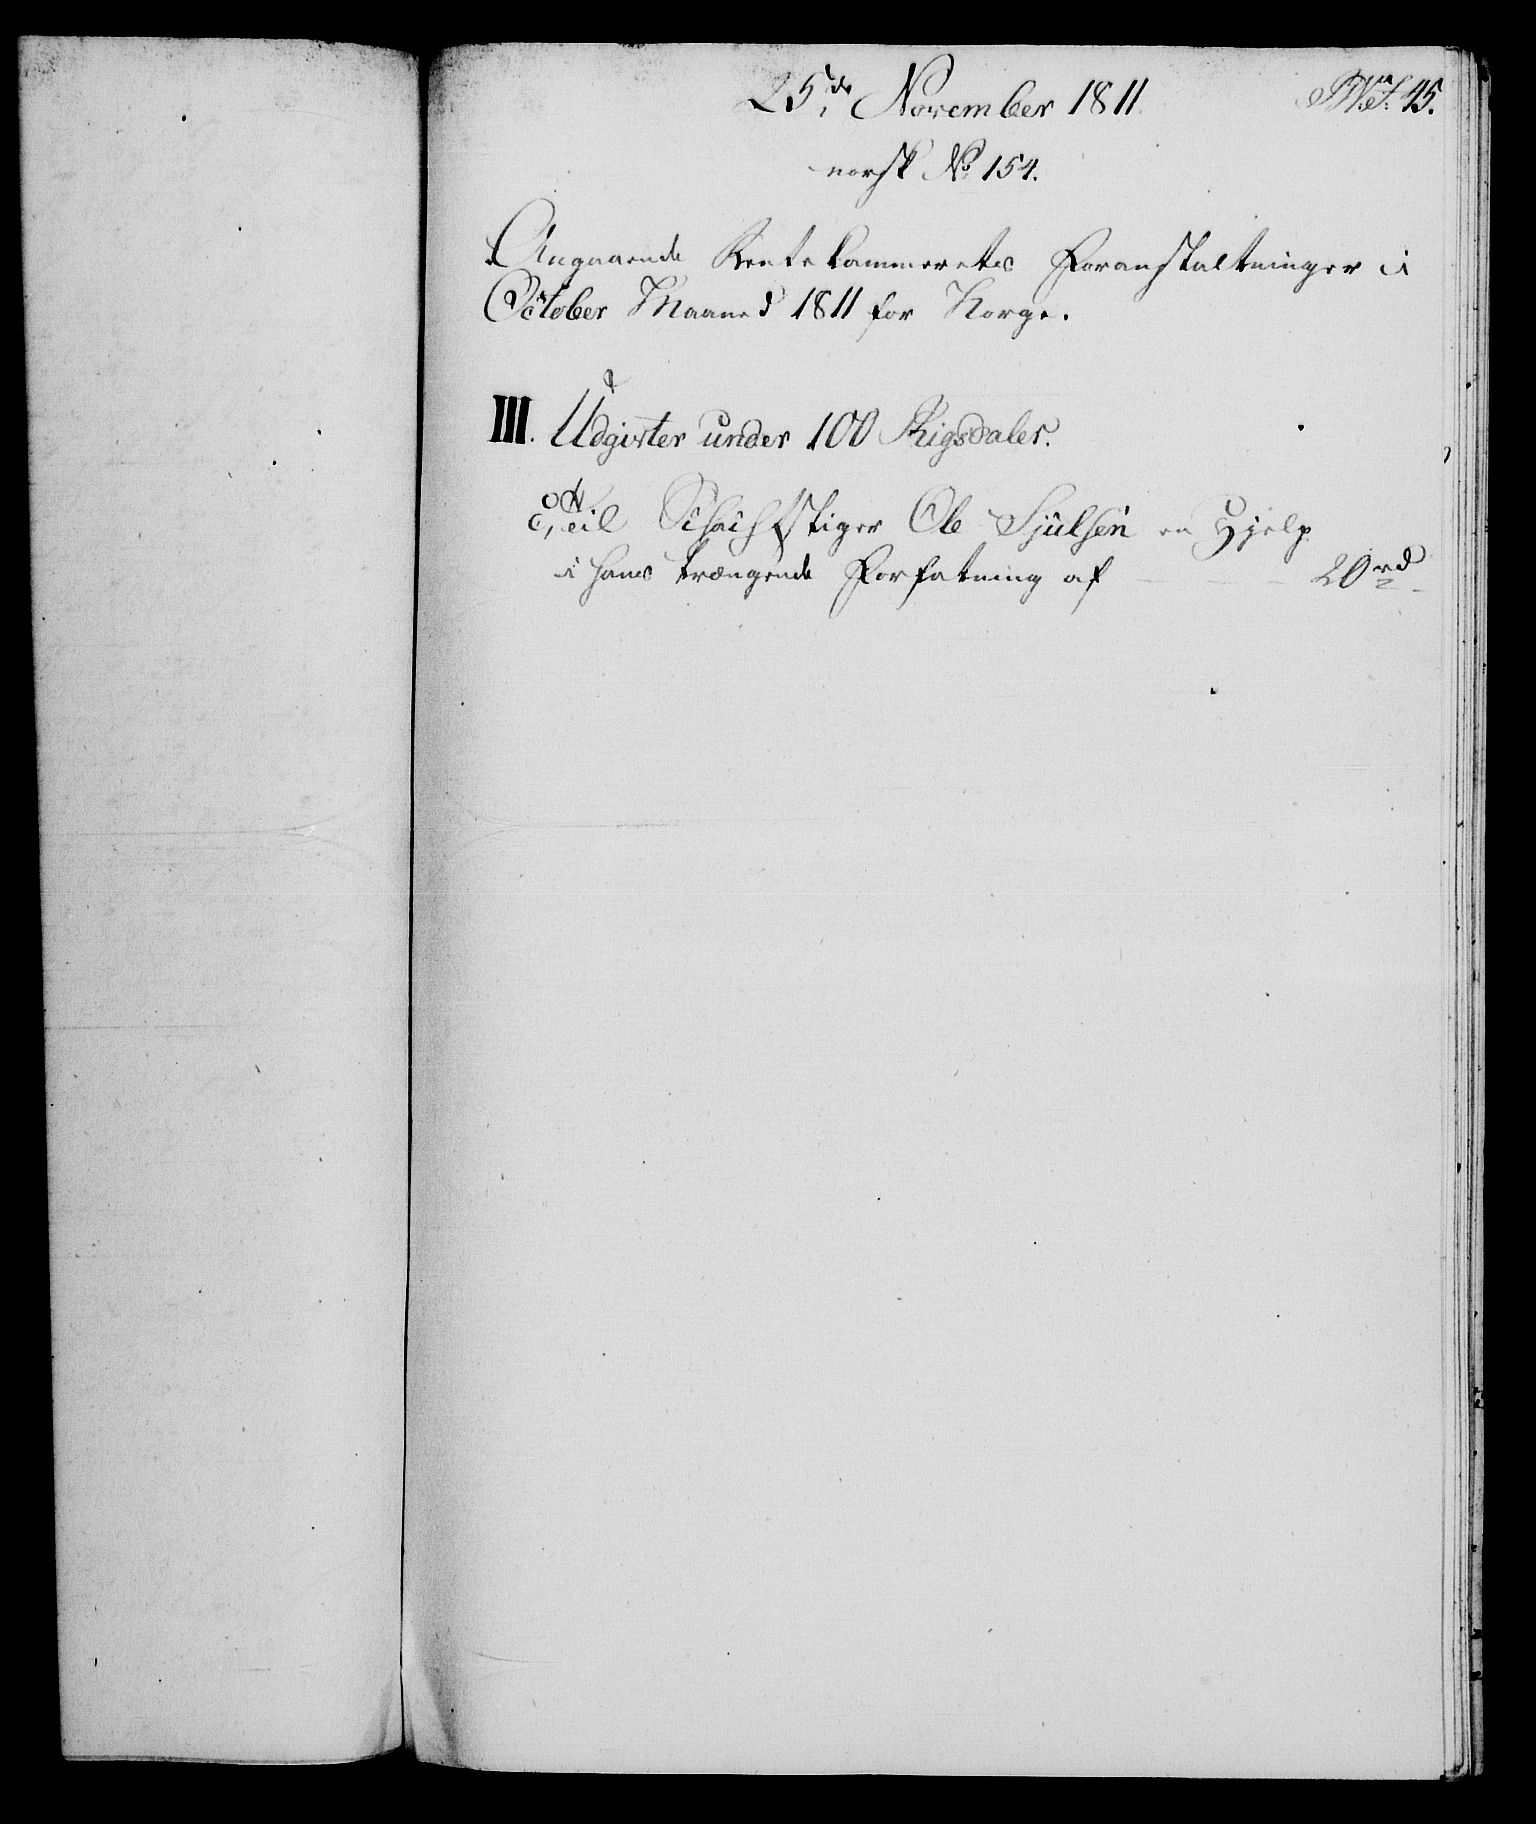 25de November 1811.
45.
norsk No 154.
Angaaende Rentekammerets Foranstaltninger i
October Maaned 1811 for Norge.
III. Udgivter under 100 Rigsdaler.
c, til Schichtstiger Ole Sjulsen en Hjelp
i hans trængende Forfatning af 20rd